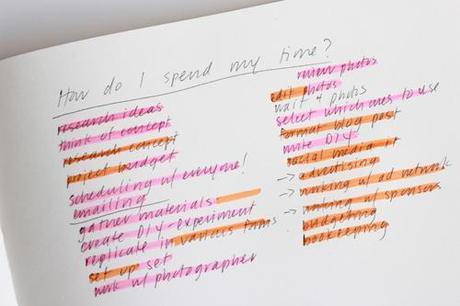 How do I spend my time?
research ideas
think of concept
research concept
project budget
scheduling w/ everyone!
emailing
gather materials
create DIY experiment
replicate in various forms
set up set
work w/ photographer
review photos
edit photos
wait 4 photos
select which ones to use
format blog post
write DIY
social media
→ advertising
→ working w/ ad network
→ working w/ sponsors
budgeting
bookkeeping